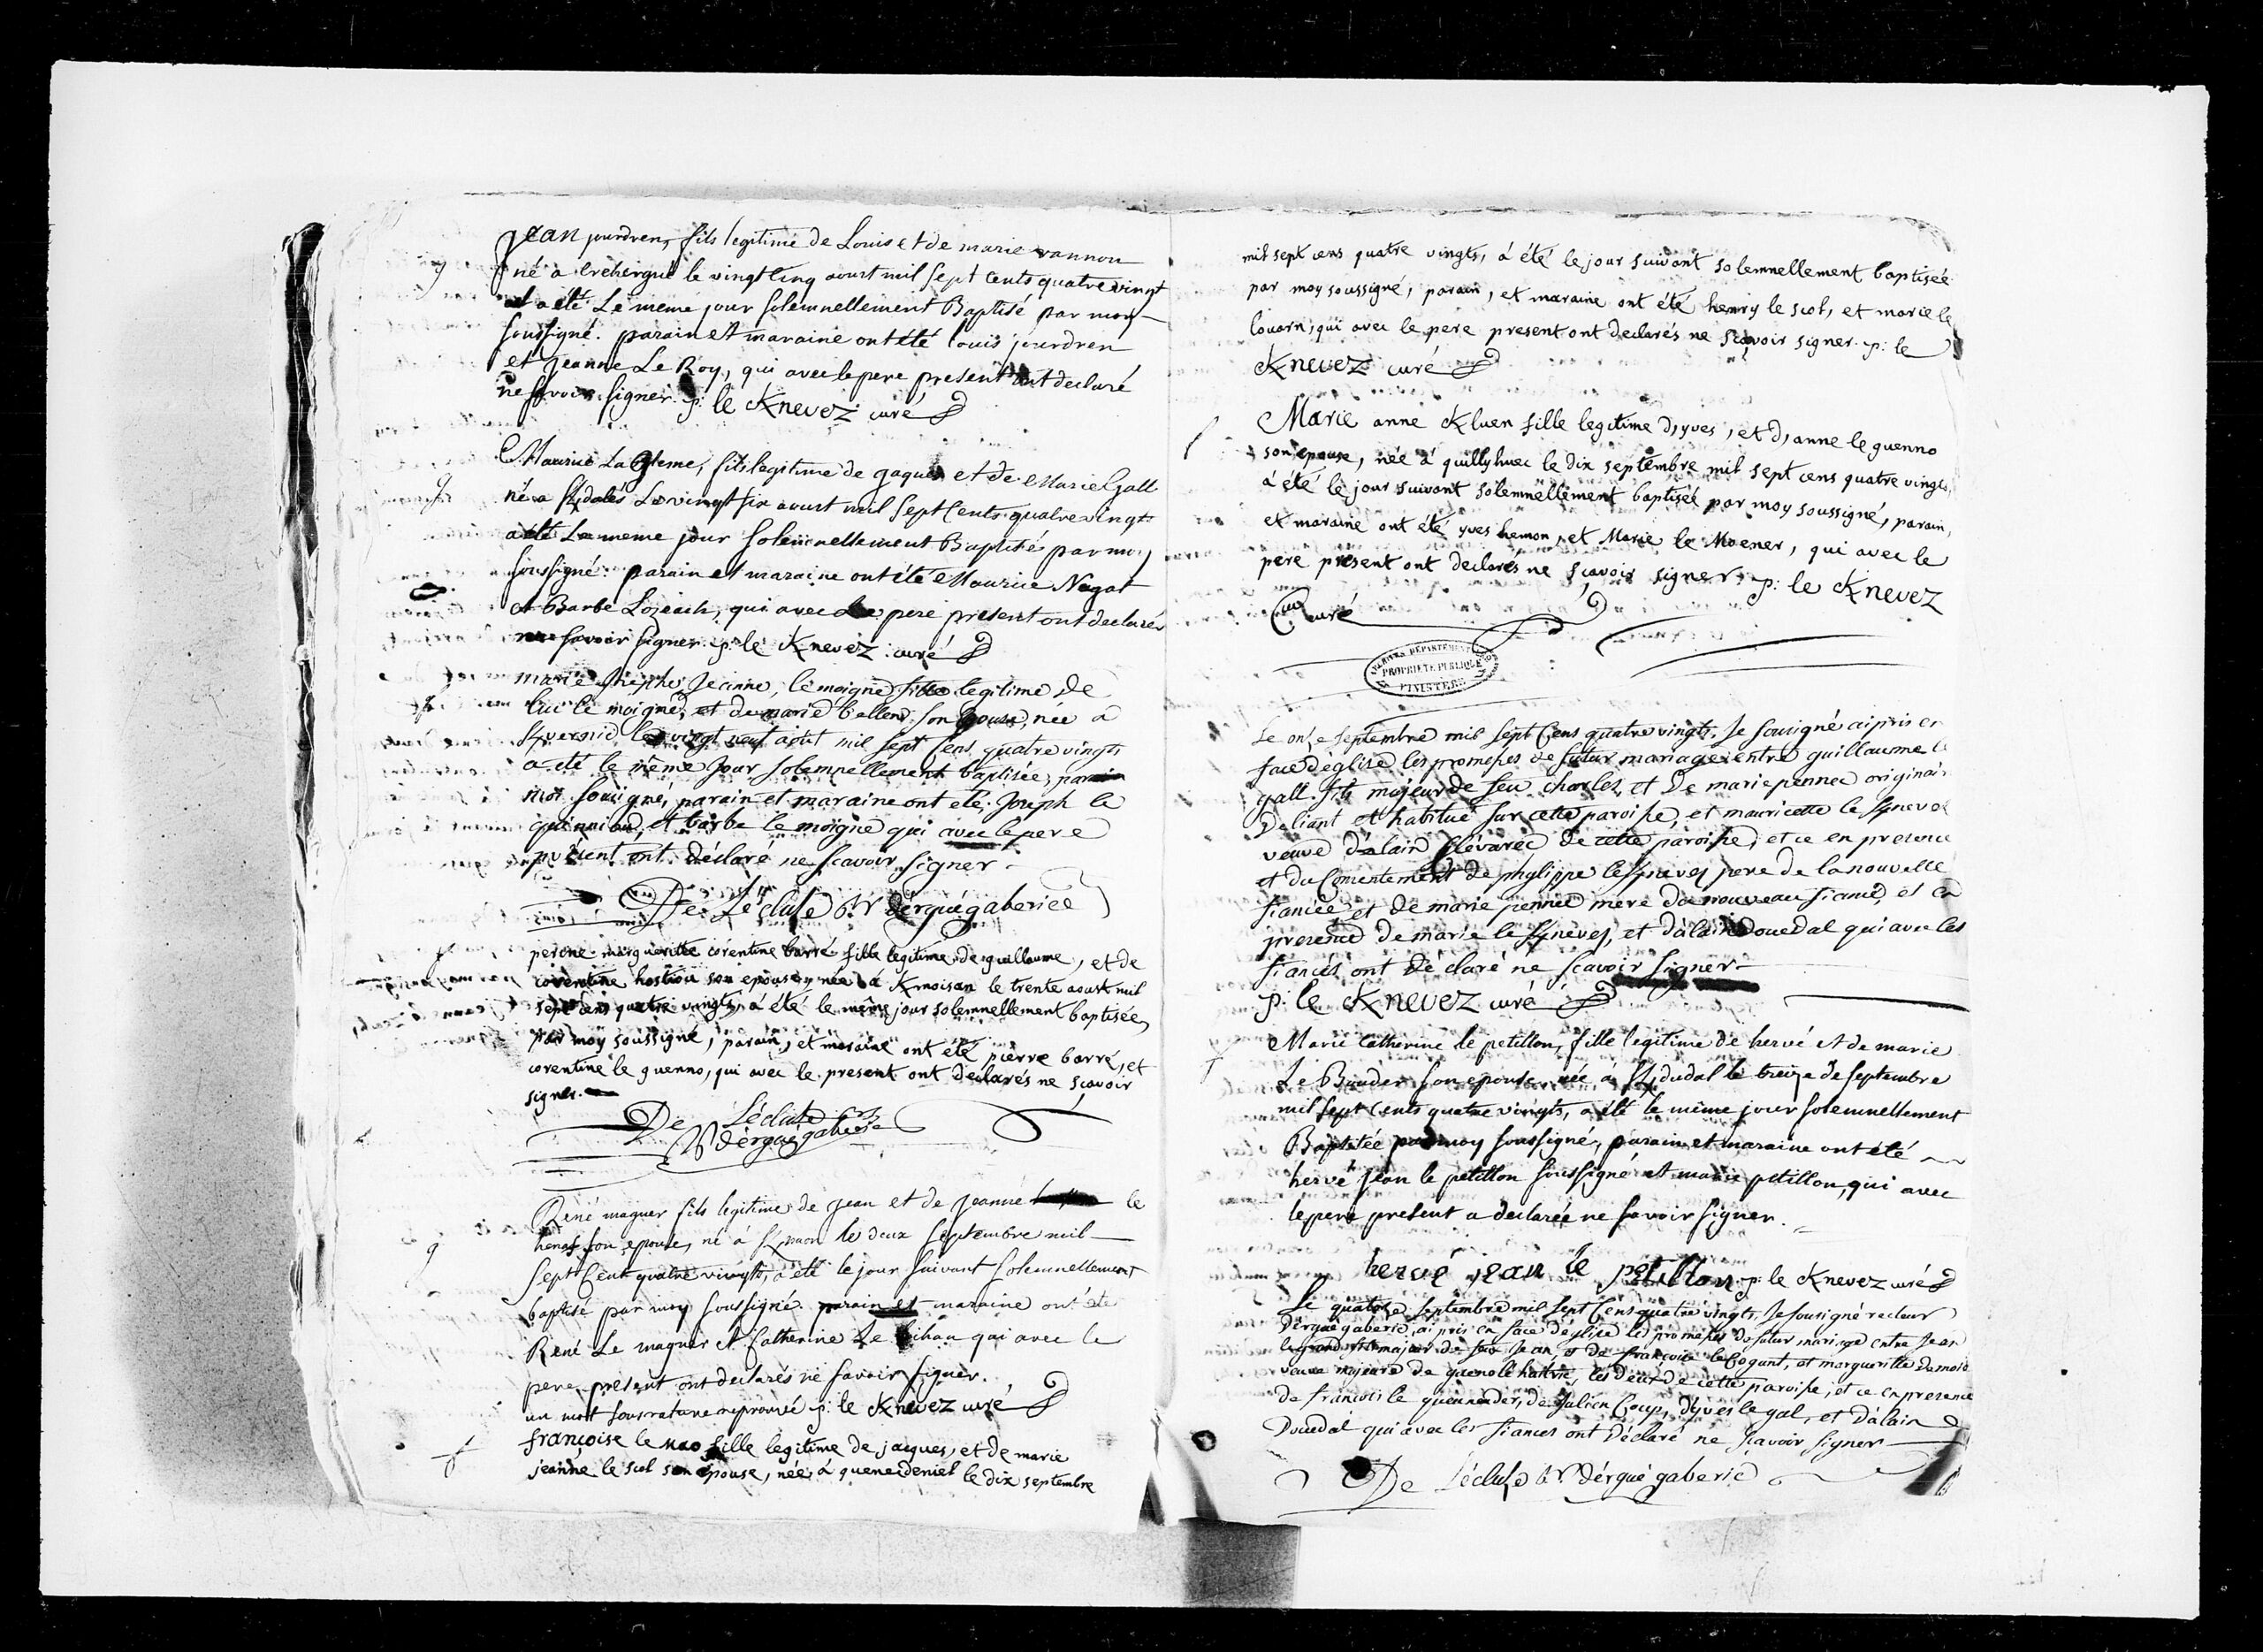 Jean jourdren, fils legitime de Louis et de marie vannou
né a Crehergué le vingt cinq aoust mil sept cents quatre vingt
a été Le meme jour solemnellement Baptisé par moy
soussigné. parain et maraine ont été louis jourdren
et Jeanne Le Roy, qui avec le pere present ont declaré
ne savoir signer. p: le Knevez curé
Maurice La , fils legitime de jaques et de Marie Gall
né a Kdalés Le vingt six aoust mil sept Cents quatre vingt
a été Le meme jour solemnellement Baptisé par moy
soussigné: parain et maraine ont été Maurice Nagat
et Barbe Lozeach, qui avec Le pere present ont declarés
ne savoir signer. p: le Knevez curé
marie Josephe Jeanne, le moigne fille legitime de
luc le moigne, et de marie bellend son Epouse, née a
Kvernic le vingt neuf aout mil sept Cens quatre vingts
a eté le même Jour solempnellement baptisée, 
moi sousigné, parain et maraine ont eté Joseph le
 et barbe le moigne qui avec le pere
présent ont déclaré ne scavoir signer.
De Lécluse Rr dérgué gaberiec
perine marguerite corentine barré fille legitime de guillaume, et de
corentine hostiou son epouse, née à Kmoisan le trente aoust mil
sept cens quatre vingts, à été le même jour solemnellement baptisée,
par moy soussigné, parain, et maraine ont été pierre barré, et
corentine le guenno, qui avec le present ont déclarés ne scavoir
signer.
De Lécluse Rr
dérgué gaberic
René maguer fils legitime de jean et de Jeanne le
henaf son epouse, né à Knaon le deux septembre mil
sept Cent quatre vingts, a été le jour suivant solemnellement
baptisé par moy soussigné. parain et maraine ont été
René Le maguer et Catherine Le bihan qui avec le
pere present ont declarés ne savoir signer.
un mot sous rature reprouvé p: le Knevez curé
françoise le nao fille legitime de jacques, et de marie
jeanne le scol son epouse, née, à quenecdeniel le dix septembre
mil sept cens quatre vingts, à été le jour suivant solemnellement baptisée
par moy soussigné, parain, et maraine ont été henry le scol, et marie le
louarn, qui avec le pere present ont declarés ne scavoir signer. p: le
Knevez curé
Marie anne Kluen fille legitime d'yves, et d'anne le guenno
son epouse, née à quillyhuec le dix septembre mil sept cens quatre vingts,
à été le jour suivant solemnellement baptisée par moy soussigné, parain,
et maraine ont été yves hemon, et Marie le Moener, qui avec le
pere present ont declarés ne scavoir signer. p: le Knevez
curé
ARCHIVES DEPARTEMENTALES
PROPRIETE PUBLIQUE
FINISTERE
Le onze septembre mil sept Cens quatre vingts, Je sousigné ai pris en
face d'églisé les promesses de futur mariage entre guillaume le
gall fils majeur de feu charles, et de marie pennec originaire
De liant et habitué sur cette paroisse, et mauricette le Knevez
veuve d'alain Clévarec de cette paroisse, et ce en presence
et du Consentement de phylippe le Knevez pere de la nouvelle
fiancée et de marie pennec mere du nouveau fiancé, et en
presence de marie le Knevez, et d'alain Douedal qui avec les
fiancés ont Déclaré ne scavoir signer
p: le Knevez curé
Marie Catherine le petillon, fille legitime de hervé et de marie
Le Bouder son epouse née à Kdudal le treize de septembre
mil sept Cents quatre vingts, a été le même jour solemnellement
Baptisée par moy soussigné, parain et maraine ont été
hervé jean le petillon soussigné et marie petillon, qui avec
le pere present a declarée ne savoir signer.
hervé jean le petillon p: le Knevez curé
Le quatorze septembre mil sept Cens quatre vingts, Je sousigné recteur
Dergué gaberic, ai pris en face d'églisé les promesses de futur mariage entre Jean
le grand fils majeur de feu Jean, et de françoise le Cogant, et marguerite 
veuve majeure de guenolé , les deux de cette paroisse, et ce en presence
de francois le quenneder, de Julien Coup, d'yves le gal, et d'alain
Douedal qui avec les fiances ont Déclaré ne scavoir signer
De Lécluse Rr dérgué gaberic